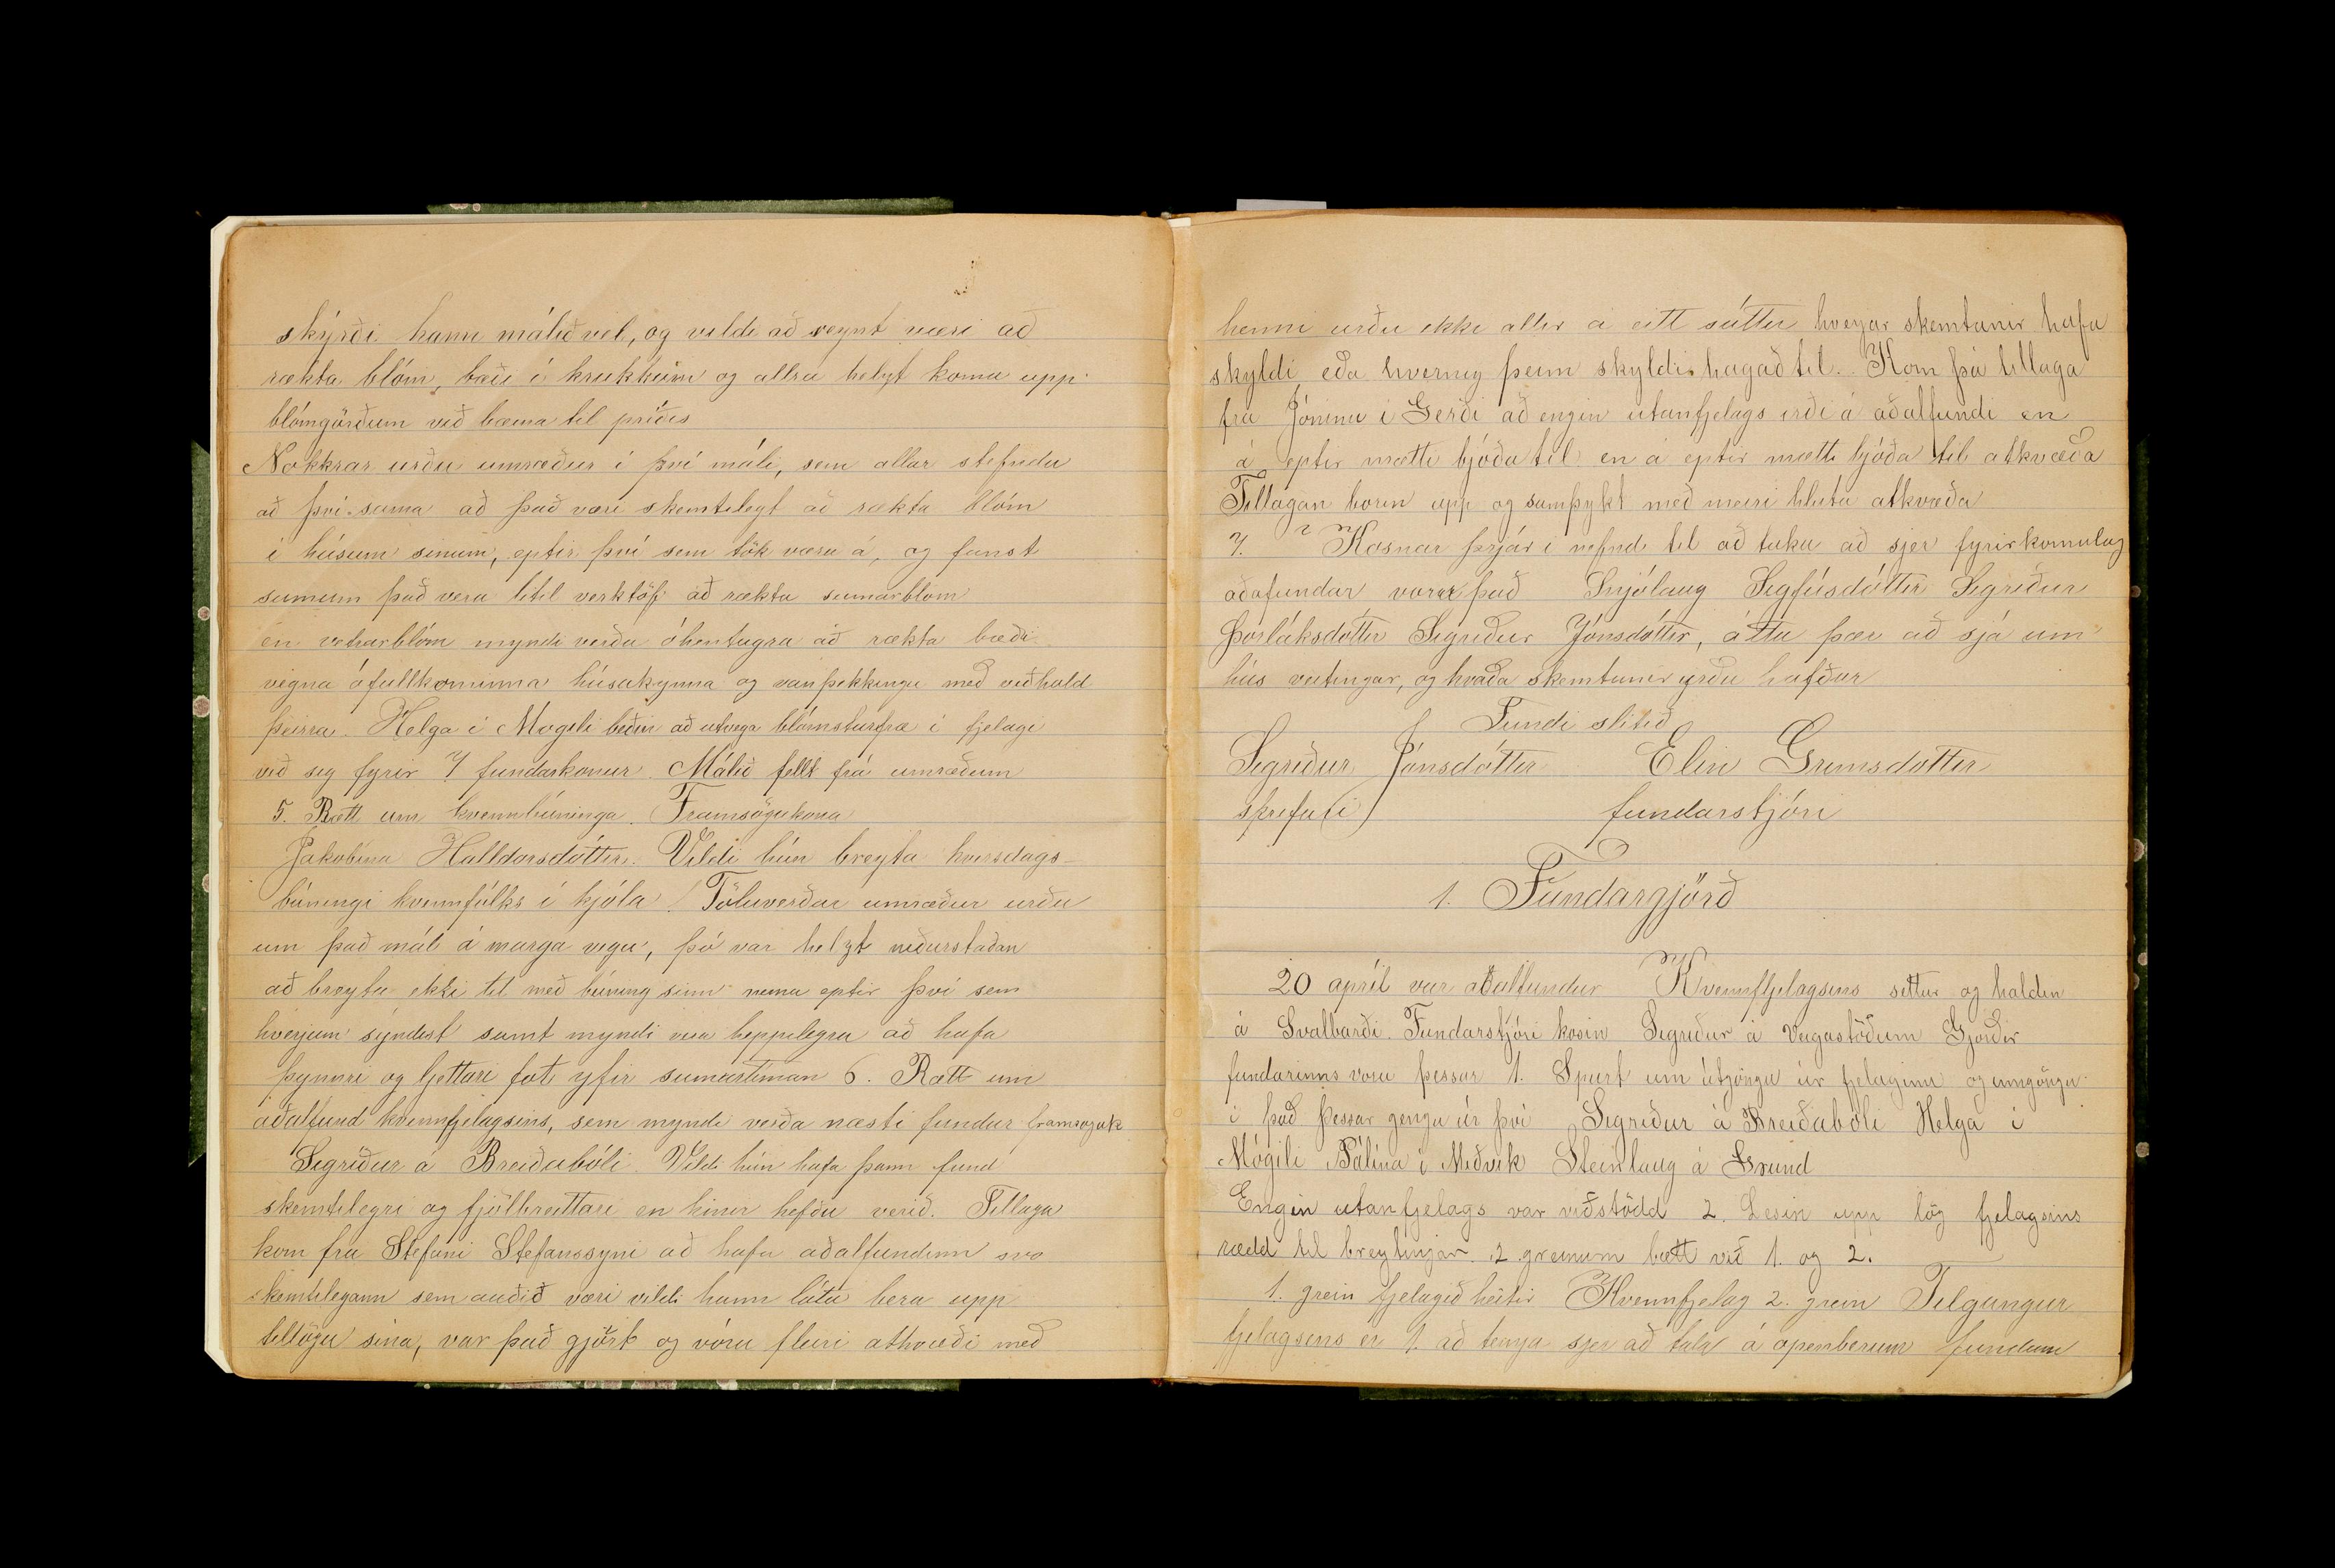 skýrði hann málið vel, og vildi að reynt væri að
rækta blóm, bæði í krukkum og allra helzt koma upp
blómgörðum við bæina til príðis
Nokkrar urðu umræður í því máli, sem allar stefndu
að því sama að það væri skemtilegt að rækta blóm
í húsum sínum, eptir því sem tök væru á, og fanst
sumum það vera litil verktöf að rækta sumarblóm
en vetrarblóm myndi verða óhentugra að rækta bæði
vegna ófullkominna húsakynna og vanþekkingu með viðhald
þeirra. Helga í Mogili beðin að utvega blómsturfræ í fjelagi
við sig fyrir 7 fundarkonur. Málið fellt frá umræðum
5. Rætt um kvennbúninga. Framsögukona
Jakobína Halldorsdóttir. Vildi hún breyta hversdags-
búningi kvennfólks í kjóla. Töluverðar umræður urðu
um það mál á marga vegu, þó var helzt niðurstaðan
að breyta ekki til með búning sinn nema eptir því sem
hverjum sýndist samt myndi vera heppilegra að hafa
þynnri og ljettari föt yfir sumartíman 6. Rætt um
aðalfund kvennfjelagsins, sem myndi verða næsti fundur framsöguk
Sigríður á Breiðabóli. Vildi hún hafa þann fund
skemtilegri og fjölbreittari en hinir hefðu verið. Tillaga
kom frá Stefáni Stefanssyni að hafa aðalfundinn svo
skemtilegann sem auðið væri vildi hann láta bera upp
tillögu sína, var það gjört og vóru fleiri athvæði með
henni urðu ekki allir á eitt sáttir hvejar skemtanir hafa
skyldi eða hvernig þeim skyldi hagað til. Kom þá tillaga
frá Jónínu í Gerði að engin utanfjelags irði á aðalfundi en
á eptir mætti bjóða til en á eptir mætti bjóða til atkvæða
Tillagan borin upp og samþykt með meiri hluta atkvæða
7. Kosnar þrjár í nefnd til að taka að sjer fyrirkomulag
aðafundar voru það Snjólaug Sigfúsdóttir Sigríður
Þorláksdóttir Sigríður Jónsdóttir, áttu þær að sjá um
hús veitingar, og hvaða skemtanir yrðu hafðar
Fundi slitið
Sigríður Jónsdóttir Elin Grimsdottir
skrifari fundarstjóri
1. Fundargjörð
20 apríl var aðalfundur Kvennfjelagsins settur og haldin
á Svalbarði. Fundarstjóri kosin Sigríður á Veigastöðum Gjörðir
fundarinns voru þessar 1. Spurt um útgöngu úr fjelaginu og inngöngu
í það þessar gengu úr því Sigríður á Breiðabóli Helga í
Mógili Pálína í Miðvík Steinlaug á Grund
Engin utanfjelags var viðstödd 2. Lesin upp lög fjelagsins
rædd til breytingar. 2 greinum bætt við 1. og 2.
1. grein fjelagið heitir Kvennfjelag 2. grein Tilgangur
fjelagsins er 1. að temja sjer að tala á opinberum fundum